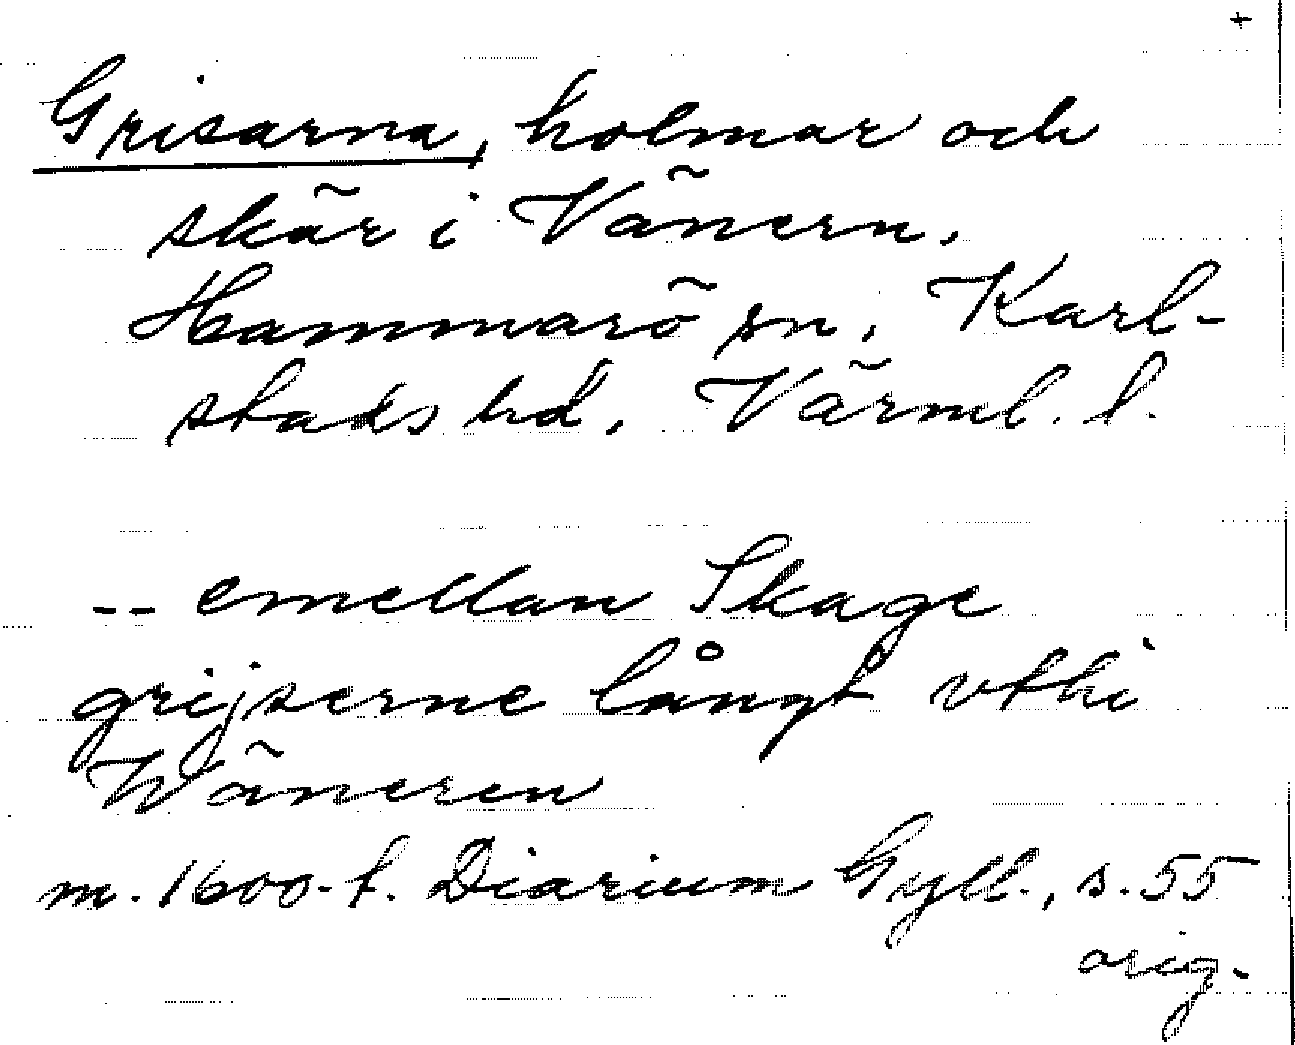 +
Grisarna, holmar och
skär i Vänern.
Hammarö sn, Karl-
stads hd, Värml. l.
-- emellan Skage
grijserne långt vthi
Wäneren
m. 1600-t. Diarium Gyll., s. 55
orig.